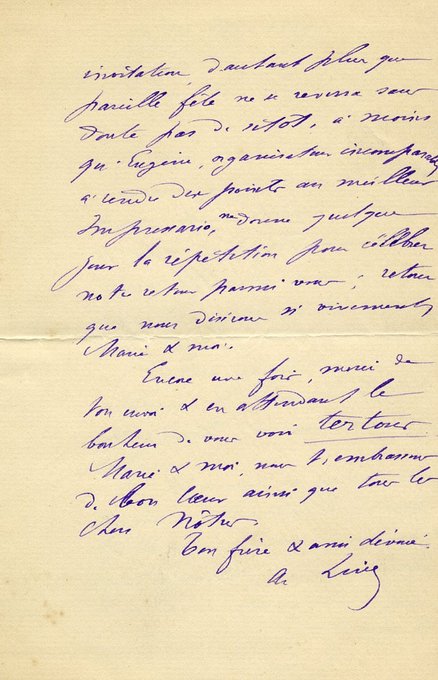 invitation d'autant plus que
pareille fête ne se reverra sans
doute pas de sitôt, à moins
qu'Eugène, organisateur incomparable,
à rendre dix points au meilleur
Impresario, ne donne quelque
jour la répétition pour célébrer
notre retour parmi vous; retour
que nous désirons si vivement,
Marie & moi.
Encore une fois, merci de
ton envoi & en attendant le
bonheur de vous voir tertous
Marie & moi, nous t'embrassons
de bon cœur ainsi que tous les
chers Nôtres.
Ton frère & ami dévoué.